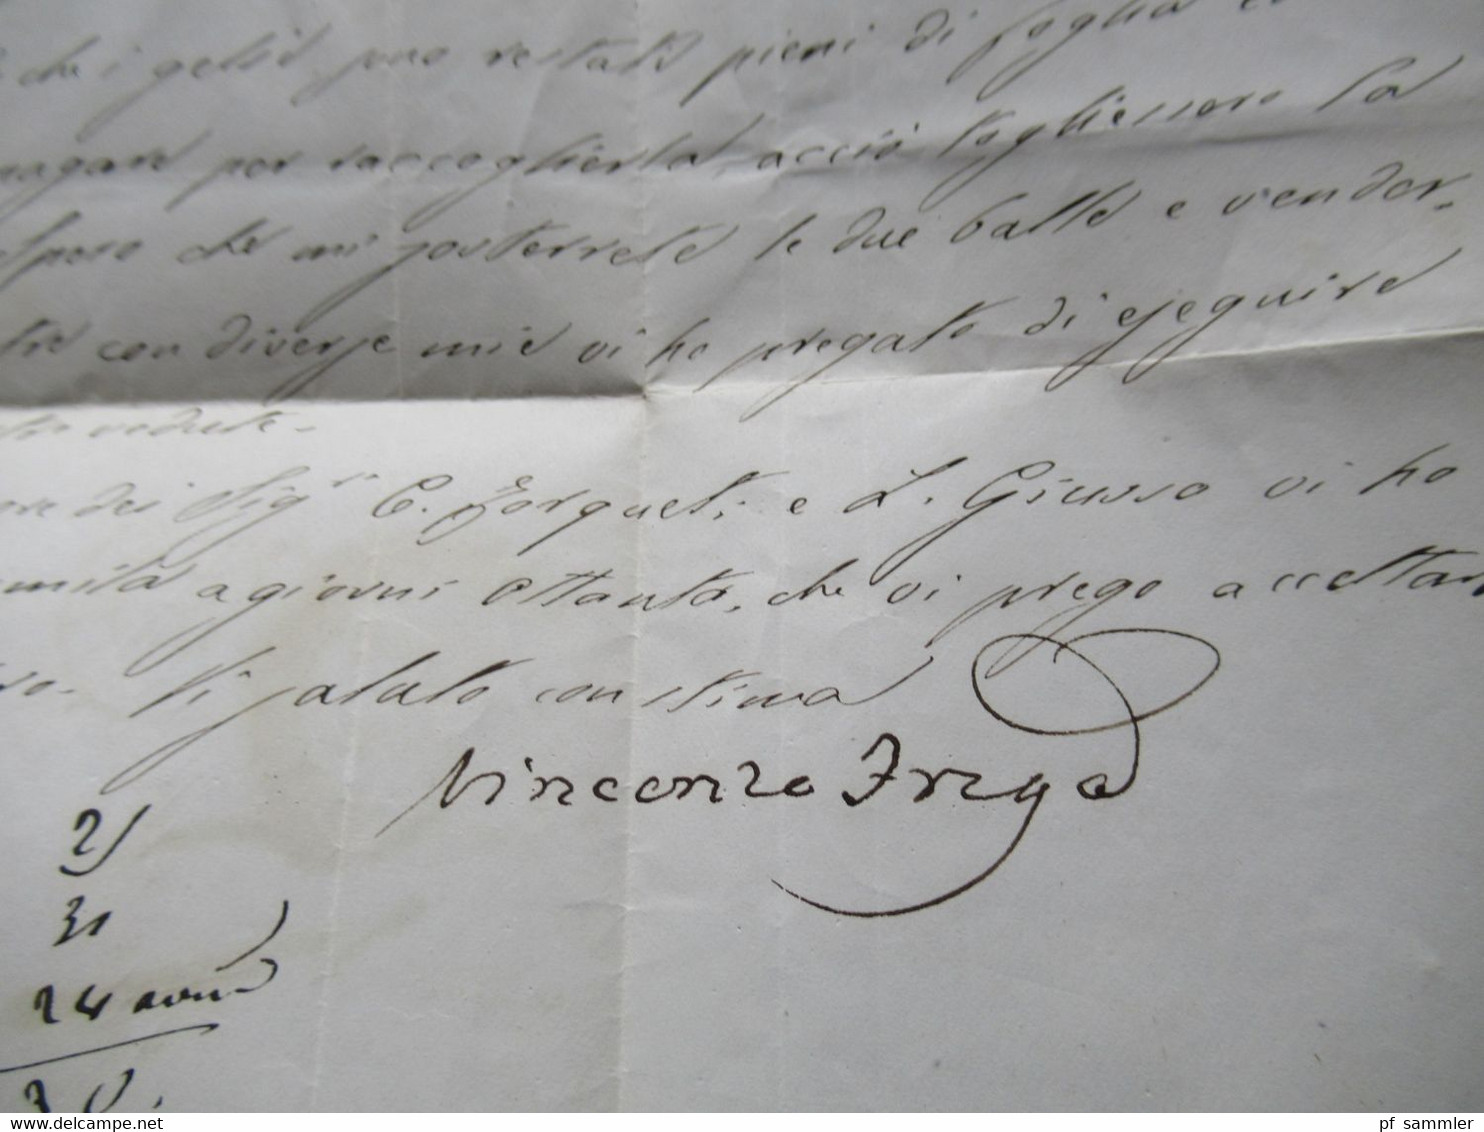 che i gelsi sono restati pieni di foglia
pagare per raccoglierla, acciò togliessero la
spero che mi sosterrete le due balle e vender-
con diverse mie vi ho pregato di eseguire
vedute.
dei Sigri C. Forquet e L. Giusso vi ho
mila a giorni ottanta, che vi prego accettar
Vi saluto con stima
Vincenzo Frega
21
31
24
70.
delcampe.net
pf_sammler